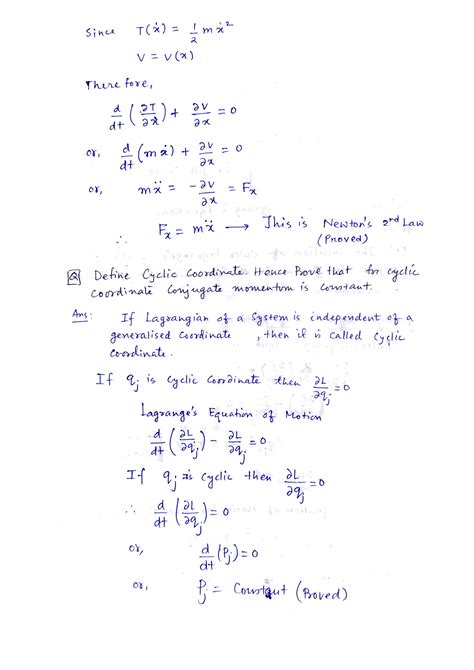 Since T(ẋ) = 1/2 m ẋ²
V = V(x)
Therefore,
d/dt (∂T/∂ẋ) + ∂V/∂x = 0
or, d/dt (mẋ) + ∂V/∂x = 0
or, mẍ = -∂V/∂x = Fx
∴ Fx = mẍ → This is Newton's 2nd Law
(Proved)
Q Define Cyclic Coordinate. Hence Prove that for cyclic
coordinate Conjugate momentum is constant.
Ans: If Lagrangian of a System is independent of a
generalised Coordinate, then it is called Cyclic
Coordinate.
If qj is Cyclic Coordinate then ∂L/∂qj = 0
Lagrange's Equation of Motion
d/dt (∂L/∂q̇j) - ∂L/∂qj = 0
If qj is Cyclic then ∂L/∂qj = 0
∴ d/dt (∂L/∂q̇j) = 0
or, d/dt (Pj) = 0
or, Pj = Constant (Proved)